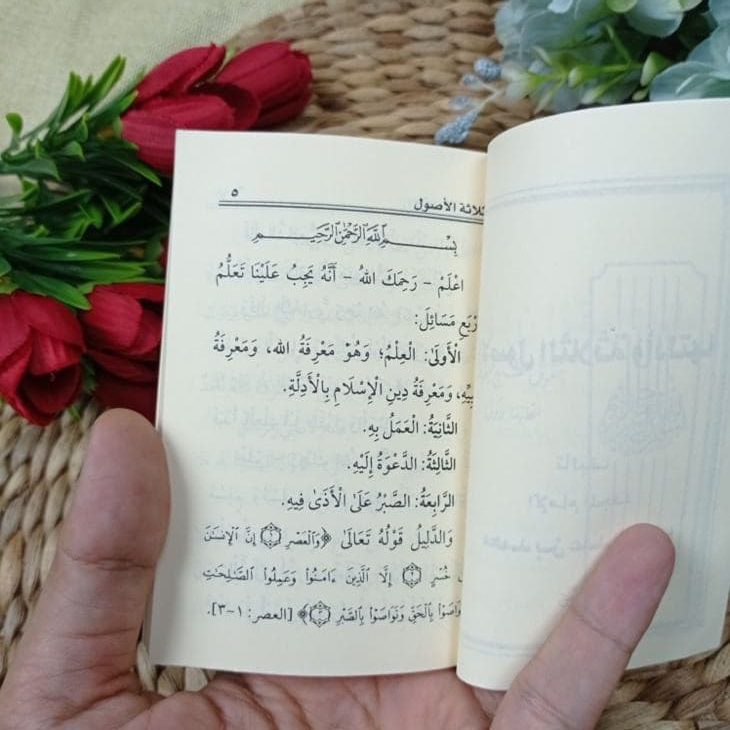 ثلاثة الأصول ٥
بِسْمِ اللَّهِ الرَّحْمَٰنِ الرَّحِيمِ
اعْلَمْ - رَحِمَكَ اللهُ - أَنَّهُ يَجِبُ عَلَيْنَا تَعَلُّمُ
رْبَعِ مَسَائِلَ:
الْأُولَىٰ: الْعِلْمُ؛ وَهُوَ مَعْرِفَةُ اللهِ، وَمَعْرِفَةُ
بِيِّهِ، وَمَعْرِفَةُ دِينِ الْإِسْلَامِ بِالْأَدِلَّةِ.
الثَّانِيَةُ: الْعَمَلُ بِهِ.
الثَّالِثَةُ: الدَّعْوَةُ إِلَيْهِ.
الرَّابِعَةُ: الصَّبْرُ عَلَى الْأَذَىٰ فِيهِ.
وَالدَّلِيلُ قَوْلُهُ تَعَالَىٰ ﴿وَٱلْعَصْرِ ۝١ إِنَّ ٱلْإِنسَٰنَ
خُسْرٍ ۝٢ إِلَّا ٱلَّذِينَ ءَامَنُوا۟ وَعَمِلُوا۟ ٱلصَّٰلِحَٰتِ
وَاصَوْا۟ بِٱلْحَقِّ وَتَوَاصَوْا۟ بِٱلصَّبْرِ ۝٣﴾ [العصر: ١-٣].